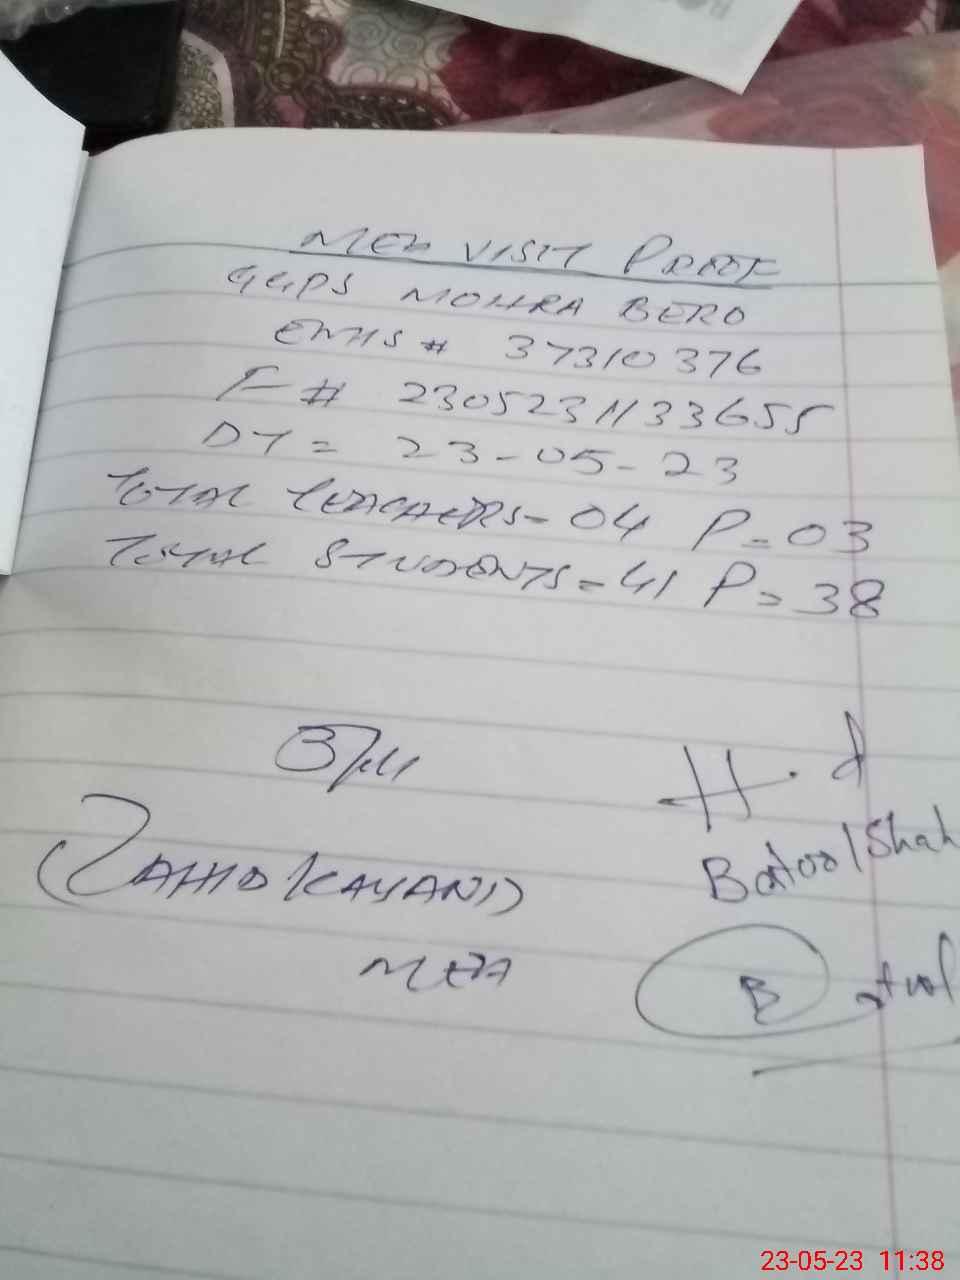 MEA VISIT PROOF
GGPS MOHRA BERO
EMIS # 37310376
F # 2305231133655
DT = 23-05-23
TOTAL TEACHERS = 04 P = 03
TOTAL STUDENTS = 41 P = 38
H.
Batool Shah
ZAHID KAYANI
MEA
Batool
23-05-23 11:38